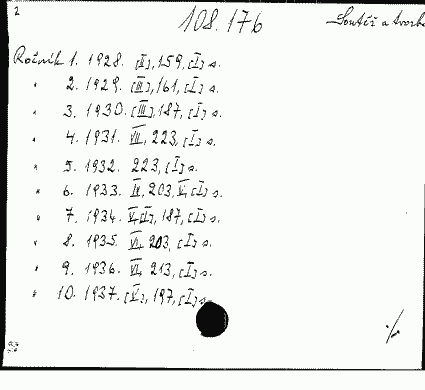 2
108.176
Soutěž a tvorba
Ročník 1. 1928. [II], 159, [I] s.
" 2. 1929. [III], 161, [I] s.
" 3. 1930. [III], 187, [I] s.
" 4. 1931. VII, 223, [I] s.
" 5. 1932. 223, [I] s.
" 6. 1933. 203, [I] s.
" 7. 1934. 187, [I] s.
" 8. 1935. VI, 203, [I] s.
" 9. 1936. VI, 213, [I] s.
" 10. 1937. [V], 197, [I] s.
./.